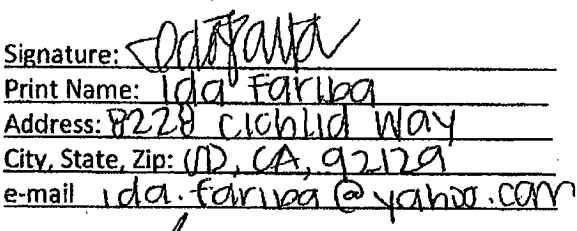 Signature:
Print Name: Ida Fariba
Address: 8228 Cichlid Way
City, State, Zip: SD, CA, 92129
e-mail ida.fariba@yahoo.com